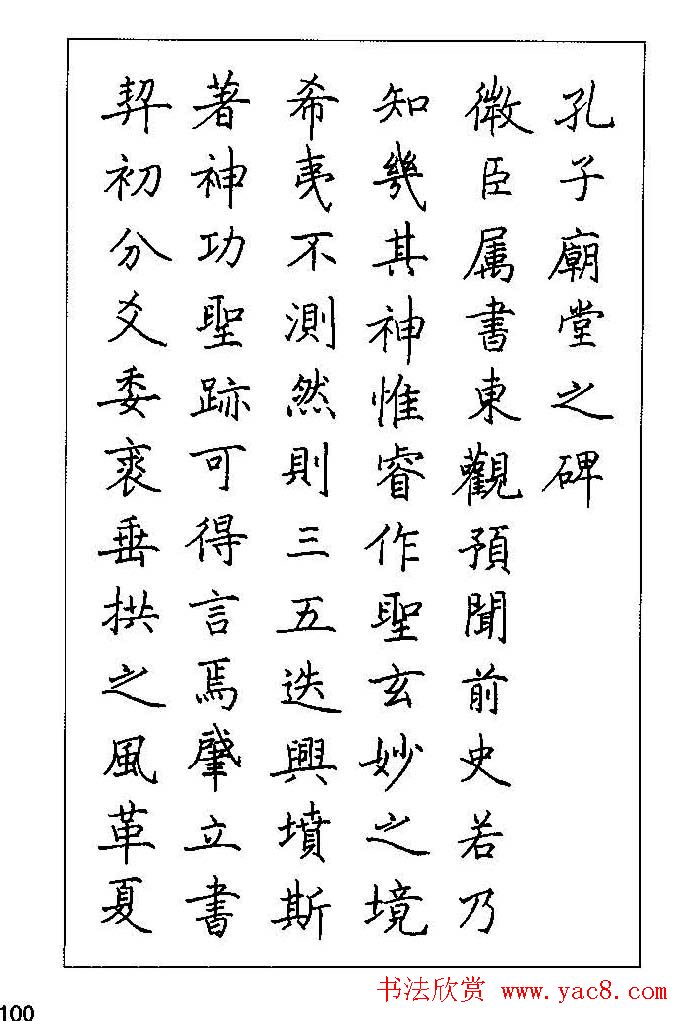 孔子廟堂之碑
微臣属書東觀預聞前史若乃
知幾其神惟睿作聖玄妙之境
希夷不測然則三五迭興墳斯
著神功聖跡可得言焉肇立書
契初分爻委裘垂拱之風革夏
100
书法欣赏 www.yac8.com